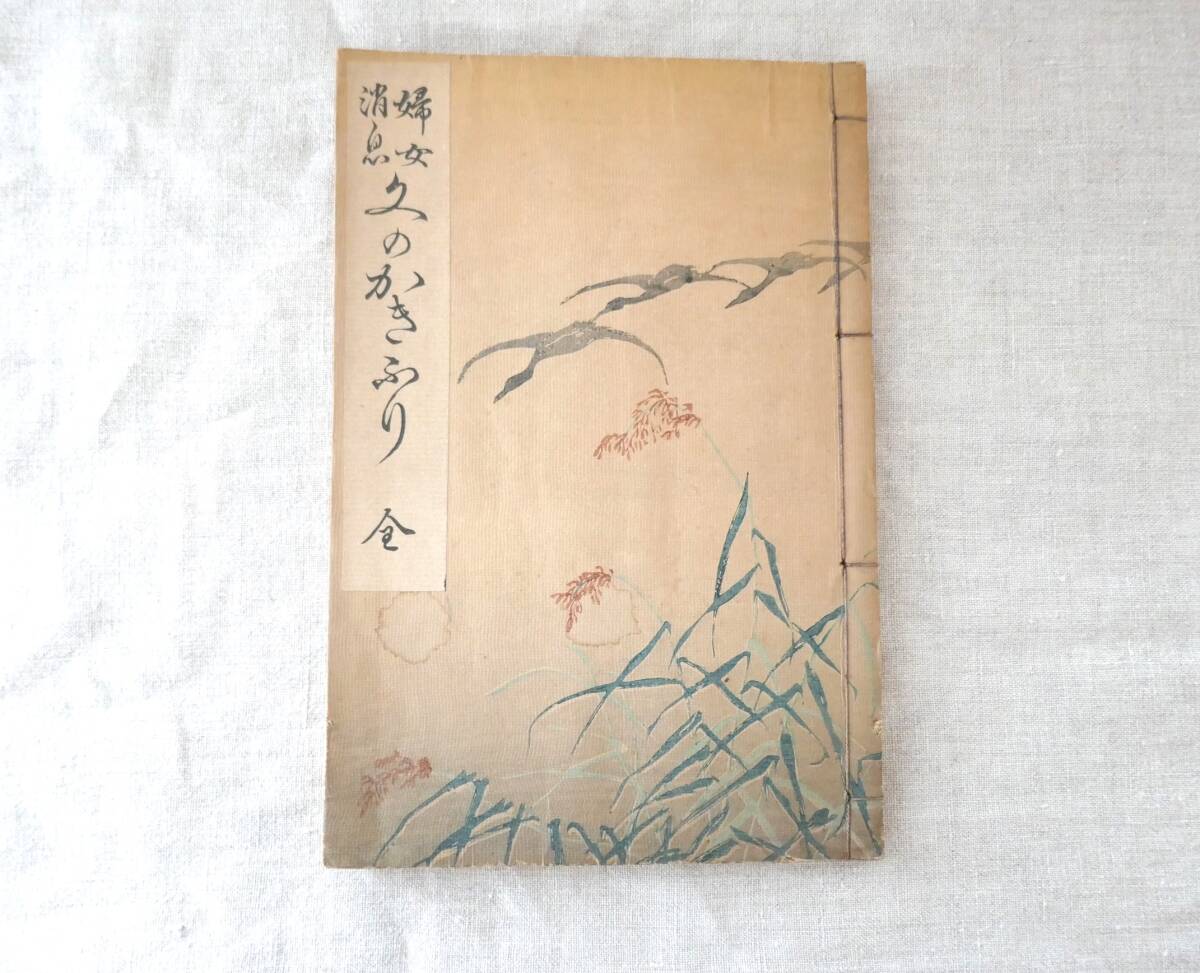 婦女
消息
文のかきふり
全